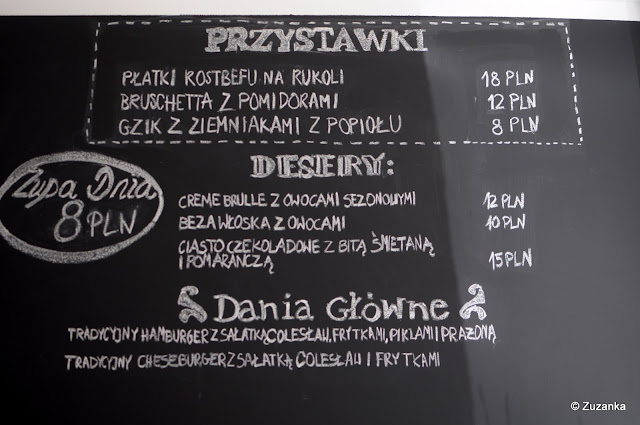 PRZYSTAWKI
PŁATKI ROSTBEFU NA RUKOLI 18 PLN
BRUSCHETTA Z POMIDORAMI 12 PLN
GZIK Z ZIEMNIAKAMI Z POPIOŁU 8 PLN
DESERY:
Zupa Dnia
8 PLN
CREME BRULLE Z OWOCAMI SEZONOWYMI 12 PLN
BEZA WŁOSKA Z OWOCAMI 10 PLN
CIASTO CZEKOLADOWE Z BITĄ ŚMIETANĄ
I POMARAŃCZĄ 15 PLN
Dania Główne
TRADYCYJNY HAMBURGER Z SAŁATKĄ COLESŁAW, FRYTKAMI, PIKLAMI I PRAŻONĄ
TRADYCYJNY CHESEBURGER Z SAŁATKĄ COLESŁAW I FRYTKAMI
© Zuzanka